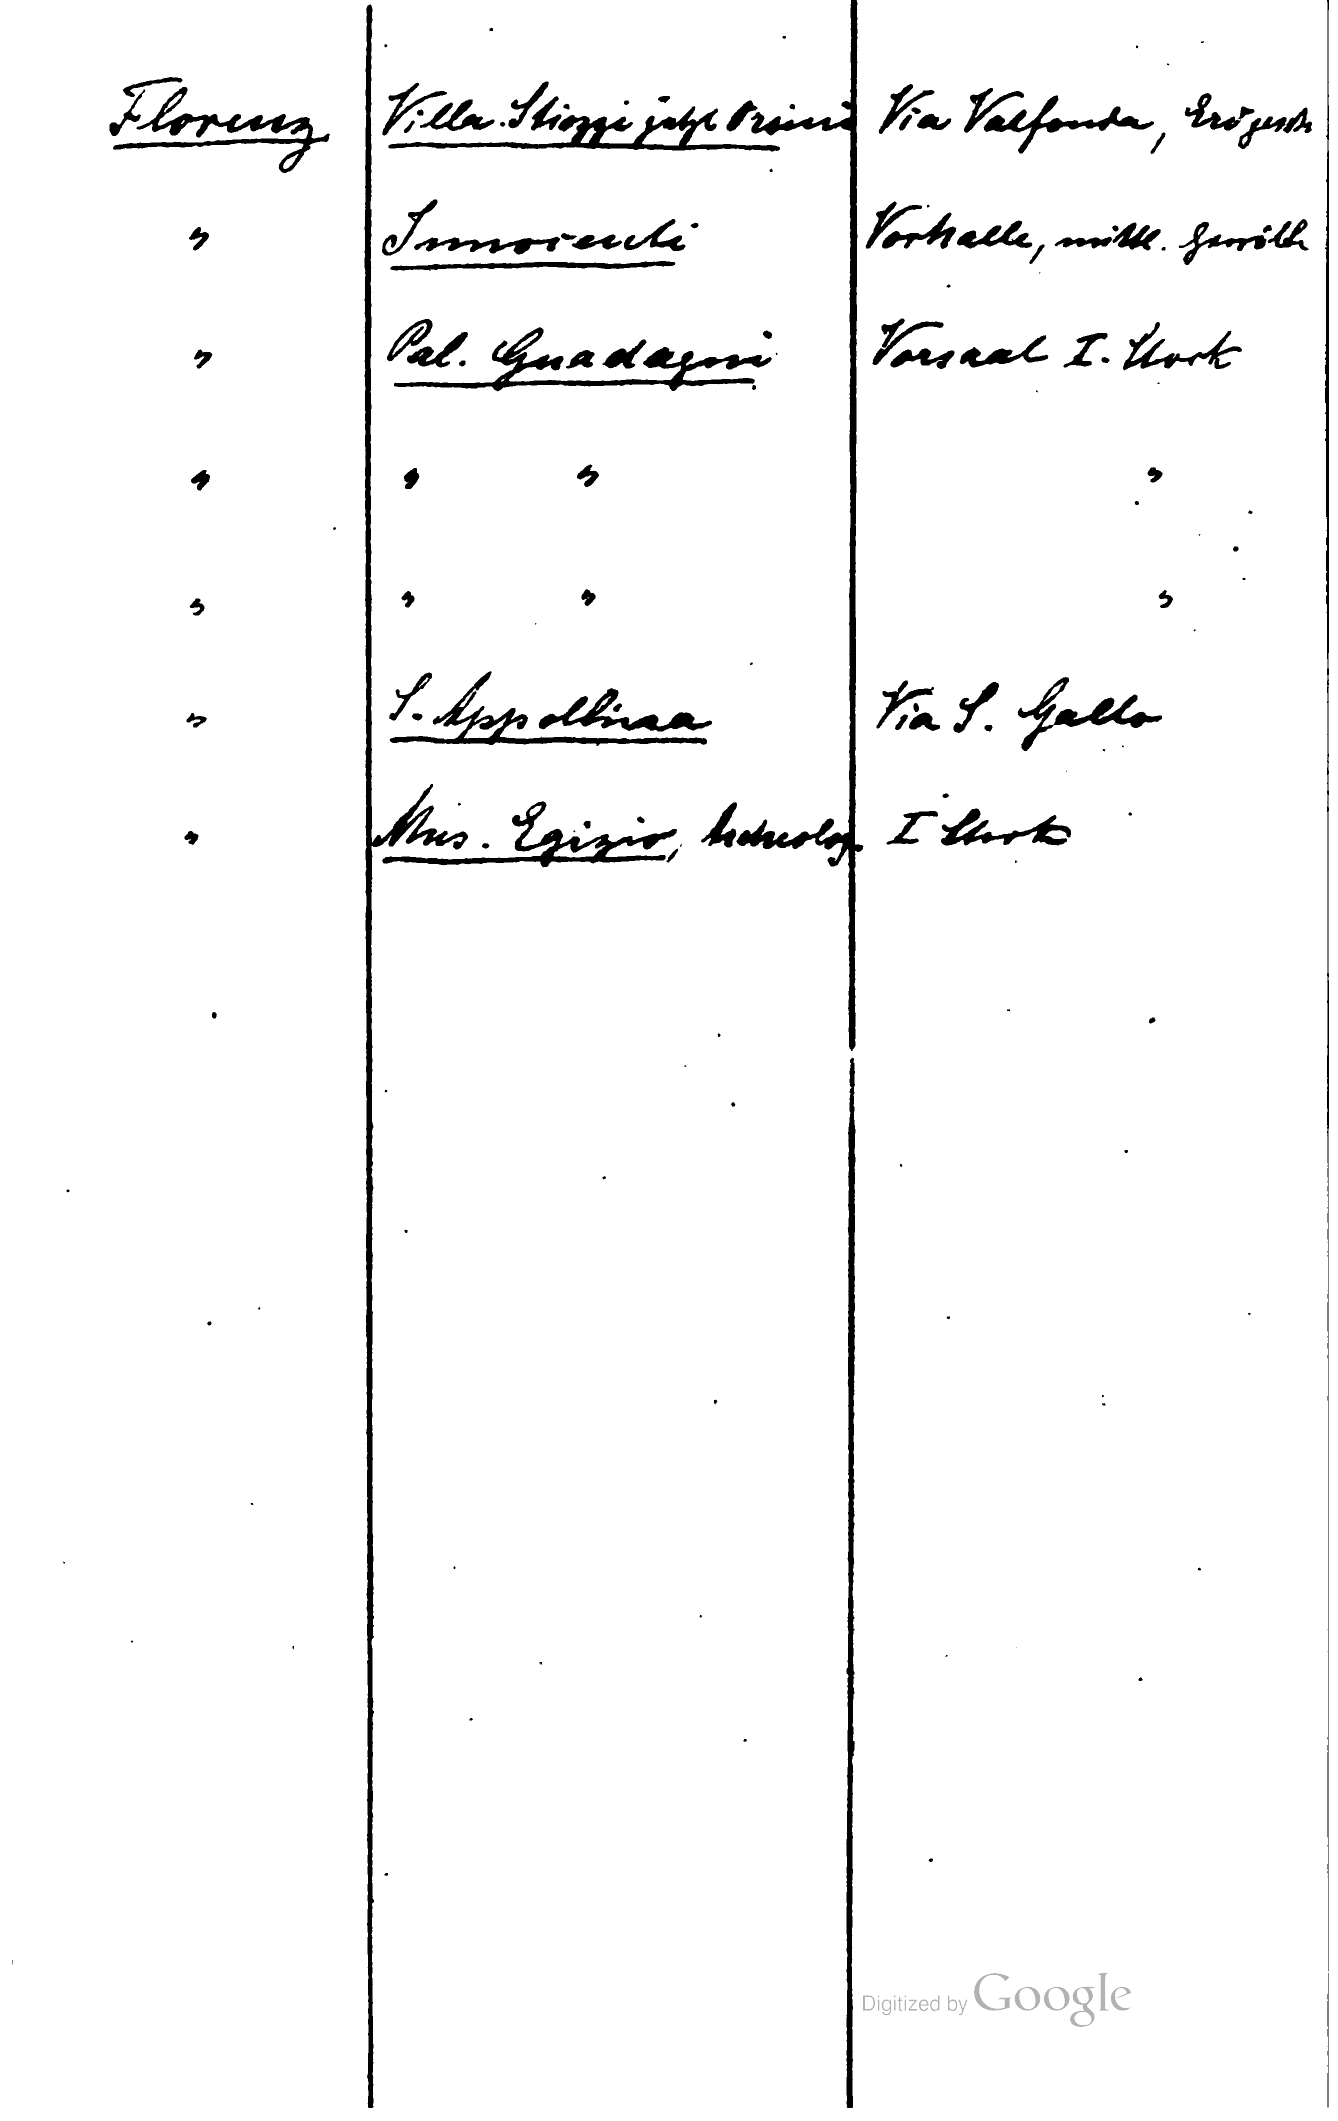 Florenz Villa Stiozzi jetzt Orsini Via Valfonda, Erdgesch
" Innocenti Vorhalle, mittl. Gewölbe
" Pal. Guadagni Vorsaal I. Stock
" " " "
" " " "
" S. Appollinaa Via S. Gallo
" Mus. Egizio, Archeolog. I Stock
Digitized by Google